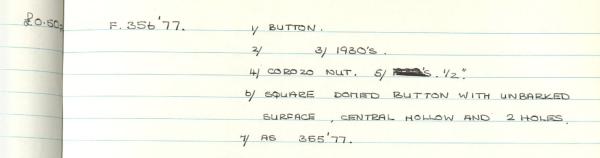 £0.50p F. 356'77. 1/ BUTTON.
2/ 3/ 1930'S.
4/ COROZO NUT. 5/ 'S. 1/2".
6/ SQUARE DOMED BUTTON WITH UNBARKED
SURFACE, CENTRAL HOLLOW AND 2 HOLES.
7/ AS 355'77.